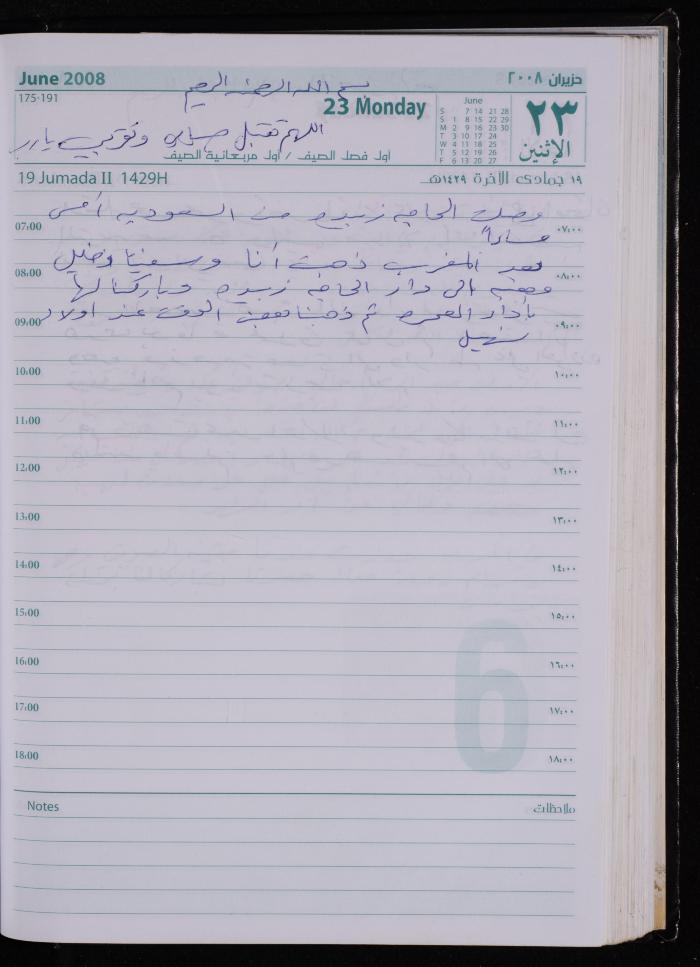 June 2008
حزيران ٢٠٠٨
بسم الله الرحمن الرحيم
175-191
23 Monday
June
S 7 14 21 28
S 1 8 15 22 29
M 2 9 16 23 30
T 3 10 17 24
W 4 11 18 25
T 5 12 19 26
F 6 13 20 27
٢٣
الإثنين
اللهم تقبل صيامي وتقربي يا رب
أول فصل الصيف / أول مربعانية الصيف
19 Jumada II 1429H
١٩ جمادى الآخرة ١٤٢٩هـ
وصلت الحاجه زبيده من السعوديه أمس
07:00 ٠٧:٠٠
مساءاً
بعد المغرب ذهبت أنا و
08:00 ٠٨:٠٠
الى دار الحاجه زبيده وباركنا لها
بأداء العمره ثم ذهبنا الوقت عند اولاد
09:00 ٠٩:٠٠
10:00 ١٠:٠٠
11:00 ١١:٠٠
12:00 ١٢:٠٠
13:00 ١٣:٠٠
14:00 ١٤:٠٠
15:00 ١٥:٠٠
16:00 ١٦:٠٠
17:00 ١٧:٠٠
18:00 ١٨:٠٠
6
Notes
ملاحظات